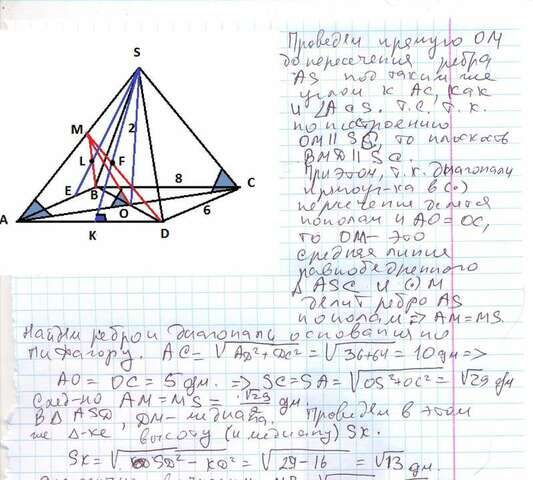 S
M
2
L
F
8
E
B
C
O
6
A
K
D
Проведём прямую OM
до пересечения ребра
AS под таким же
углом к AC, как
и
по построению
OM ||
то плоскость
При этом, т.к. диагонали
прямоуг-ка в (·)
пересечения делятся
пополам и AO = OC,
то OM – это
средняя линия
равнобедренного
Δ ASC и (·) M
делит ребро AS
пополам ⇒ AM = MS.
Найдём рёбра и диагонали основания по
Пифагору. AC = √AD²+DC² = √36+64 = 10 дм ⇒
AO = OC = 5 дм. ⇒ SC = SA = √OS²+OC² = √29 дм
След-но AM = MS = √29/2 дм.
В Δ ASD, DM – медиана. Проведём в этом
же Δ-ке высоту (и медиану) SK.
SK = √SD² – KD² = √29 – 16 = √13 дм.